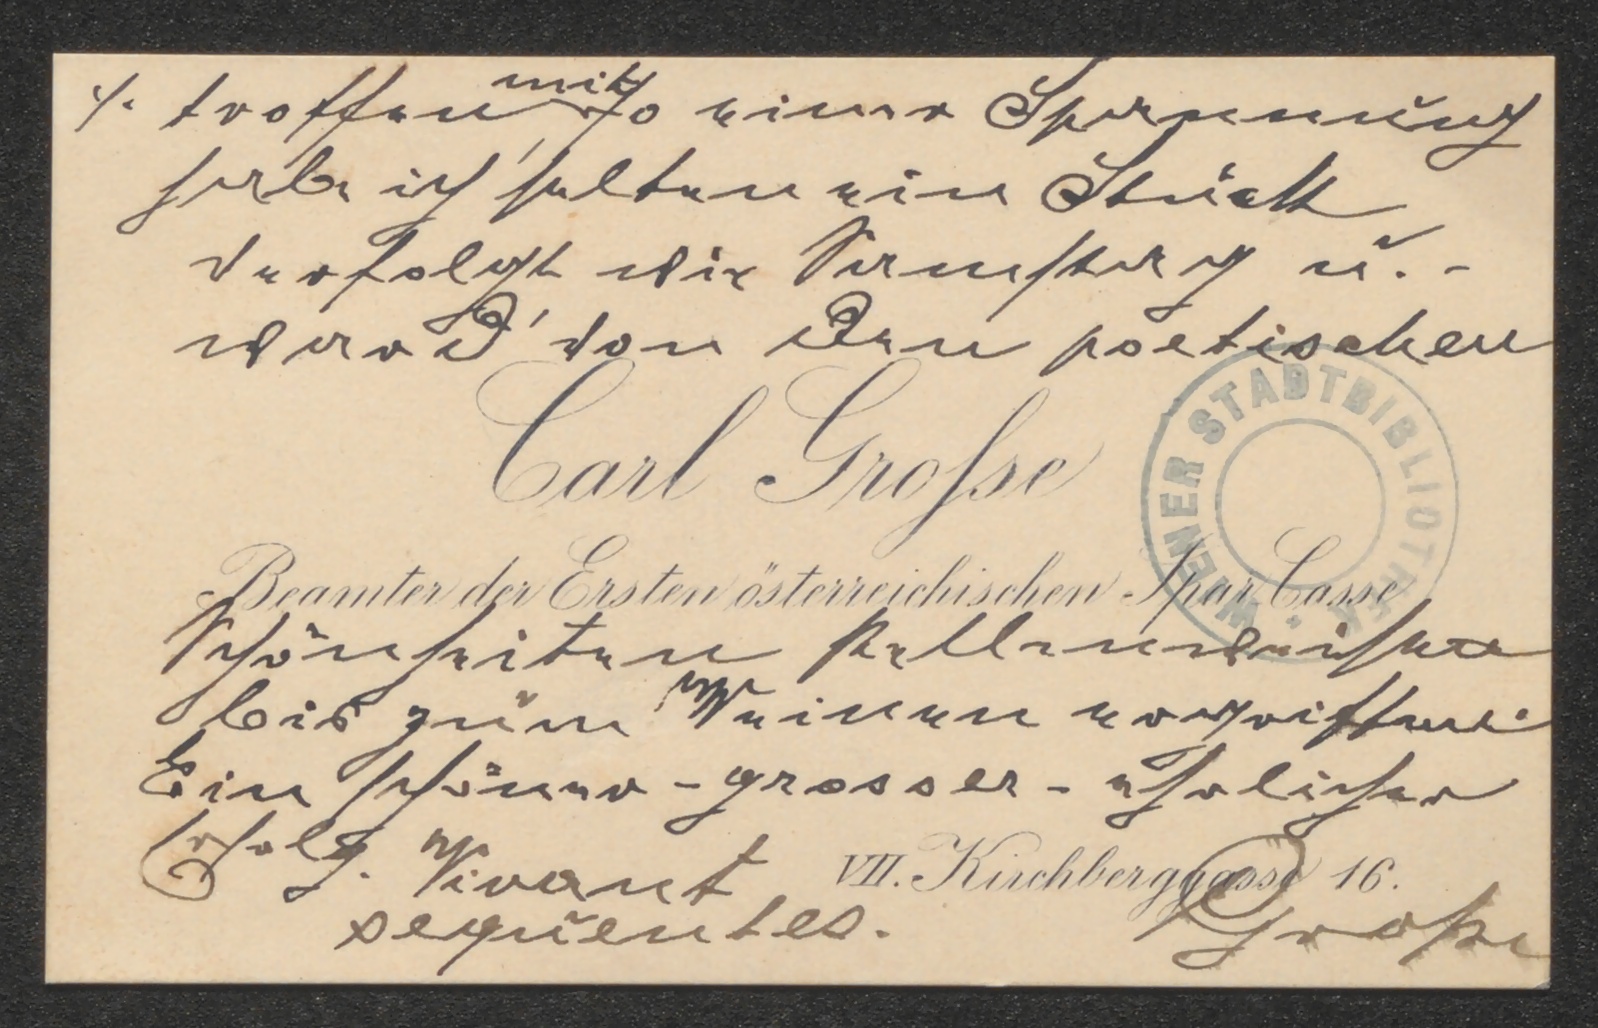 ./. troffen, mit so einer Spannung
habe ich selten ein Stück
verfolgt wie Samstag u. -
ward von den poetischen
Carl Grosse
Beamter der Ersten österreichischen Spar Casse
WIENER STADTBIBLIOTHEK
Schönheiten stellenweise
bis zum Weinen ergriffen!
Ein schöner - grosser - ehrlicher
Erfolg. Vivant
VII. Kirchberggasse 16.
sequentes.
Große